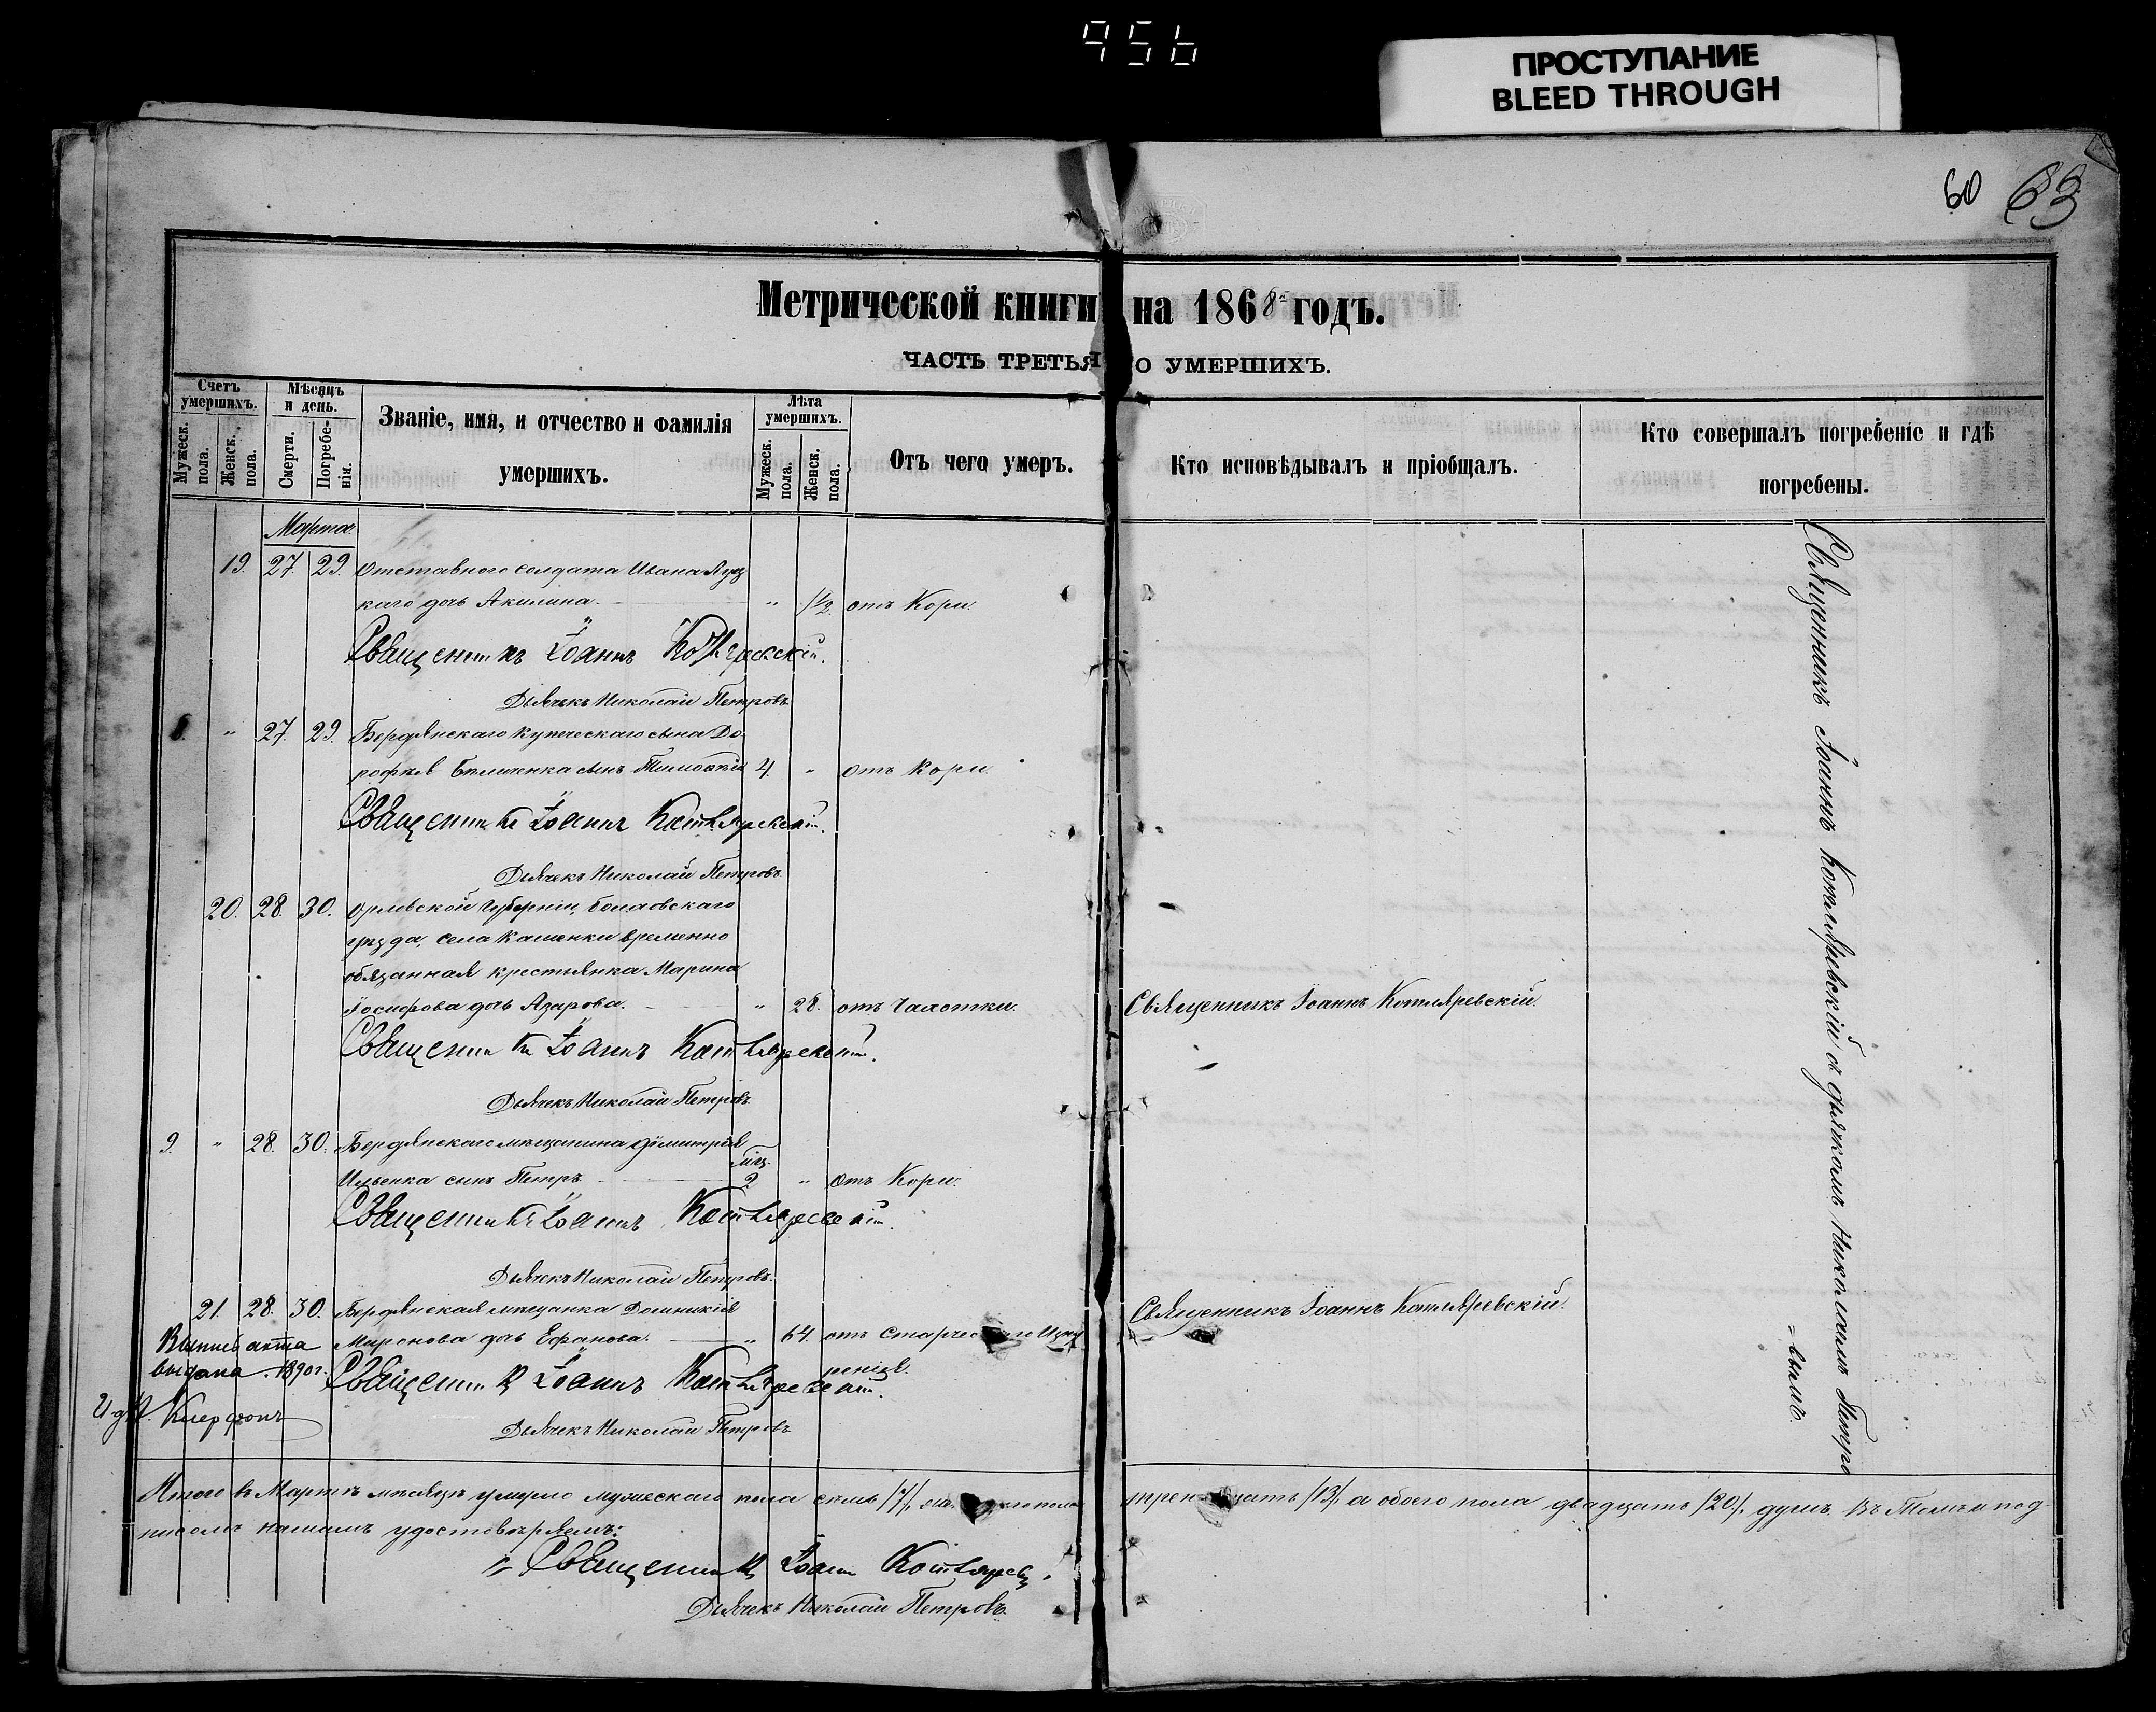 956
ПРОСТУПАНИЕ
BLEED THROUGH
60 63
Метрической книги на 1868й годъ.
ЧАСТЬ ТРЕТЬЯ О УМЕРШИХЪ.
Счетъ умершихъ.
Мужеск. пола.
Женск. пола.
Мѣсяцъ и день.
Смерти.
Погребе-нія.
Званіе, имя, и отчество и фамилія
умершихъ.
Лѣта умершихъ.
Мужеск. пола.
Женск. пола.
Отъ чего умеръ.
Кто исповѣдывалъ и пріобщалъ.
Кто совершалъ погребеніе и гдѣ
погребены.
Марта.
19. 27. 29. Отставного солдата Ивана
каго дочь Акилина. " 1/2 отъ Кори.
Священникъ Іоаннъ Котляревскій.
Дьячекъ Николай Петровъ
8. " 27. 29. Бердянскаго купеческаго сына До
рофея сынъ Тимофей 4. " отъ Кори.
Священникъ Іоаннъ Котляревскій.
Дьячекъ Николай Петровъ.
20. 28. 30. Орловской Губерніи, Болховскаго
уѣзда, села временно
обязанная крестьянка Марина
Іосифова дочь Азарова. " 28. отъ Чахотки. Священникъ Іоаннъ Котляревскій.
Священникъ Іоаннъ Котляревскій.
Дьячекъ Николай Петровъ.
9. " 28. 30. Бердянскаго мѣщанина Димитрія
сынъ Петръ 2 " отъ Кори.
Священникъ Іоаннъ Котляревскій.
Дьячекъ Николай Петровъ.
21. 28. 30. Бердянская мѣщанка Домникія Священникъ Іоаннъ Котляревскій.
Миронова дочь Ефанова. " 64. отъ
Выпись акта
выдана 1890 г.
Священникъ Іоаннъ Котляревскій.
Дьячекъ Николай Петровъ
Священникъ Іоаннъ Котляревскій съ дьячкомъ Николаемъ Петро
=вымъ.
Итого въ Мартѣ мѣсяцѣ умерло мужескаго пола семь /7/, пола /13/, а обоего пола двадцать /20/, душъ. Въ томъ и под
писомъ нашимъ удостовѣряемъ:
Священникъ Іоаннъ
Дьячекъ Николай Петровъ.